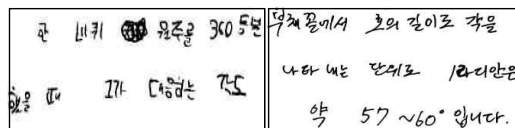 한 바퀴 원주를 360 등분
했을 때 그가 대응하는 각도
부채꼴에서 호의 길이로 각을
나타내는 단위로 1라디안은
약 57 ~60° 입니다.